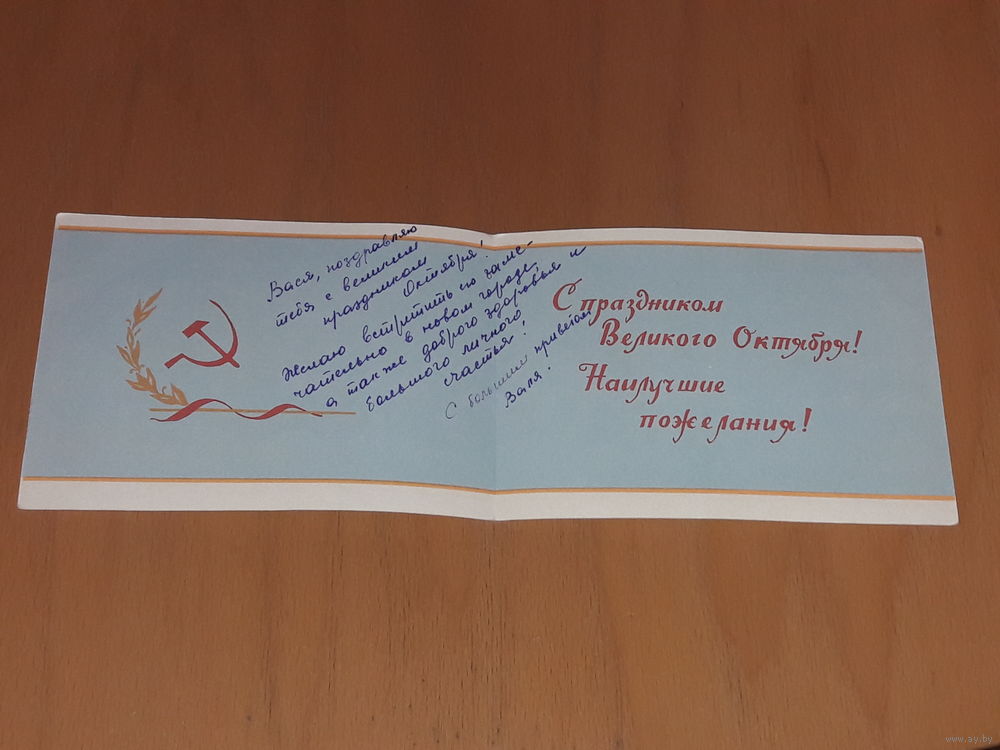 Вася, поздравляю
тебя с великим
праздником
Октября!
Желаю встретить его заме-
чательно в новом городе,
а также доброго здоровья и
большого личного
счастья!
С большим приветом
Валя.
С праздником
Великого Октября!
Наилучшие
пожелания!
www.ay.by